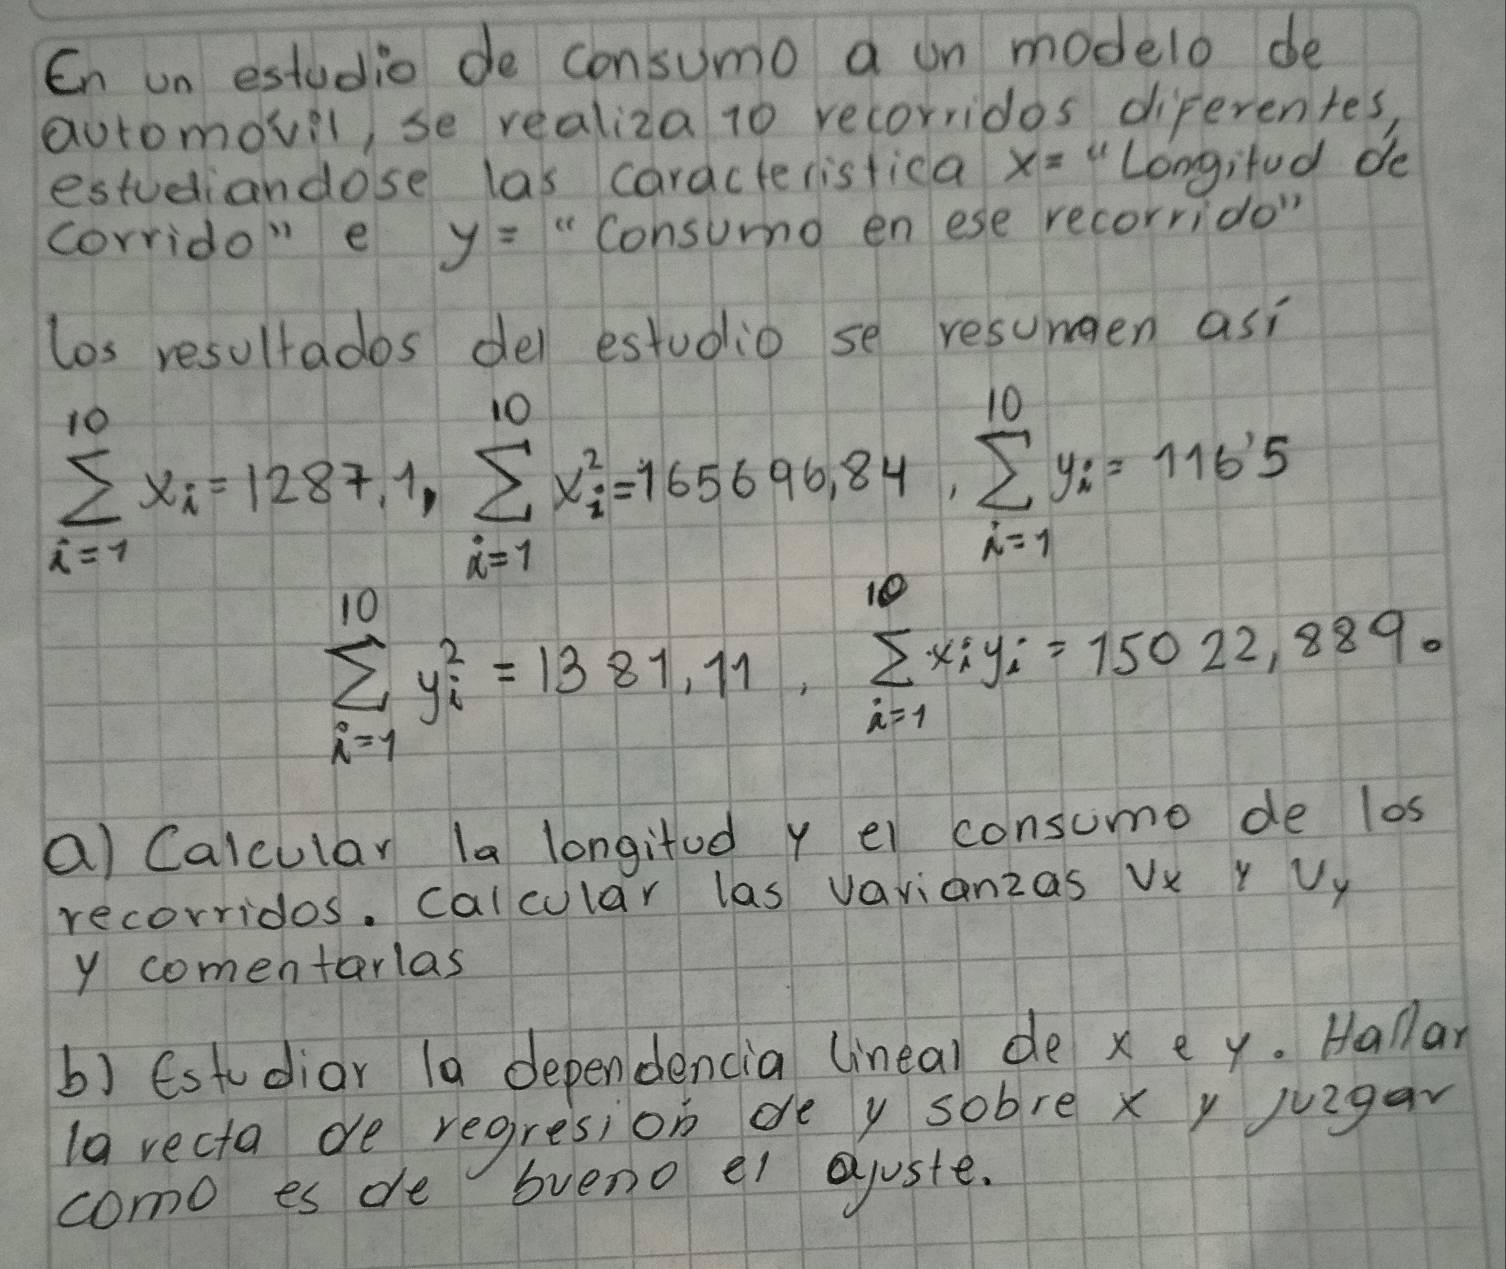 En un estudio de consumo a un modelo de
automovil, se realiza 10 recorridos diferentes,
estudiandose las caracteristica x= "Longitud de
corrido" e y= "Consumo en ese recorrido"
los resultados del estudio se resumen así
10 ∑ i=1 xᵢ = 1287,1, 10 ∑ i=1 xᵢ² = 165696,84, 10 ∑ i=1 yᵢ = 116'5
10 ∑ i=1 yᵢ² = 1381,11, 10 ∑ i=1 xᵢyᵢ = 15022,889.
a) Calcular la longitud y el consumo de los
recorridos. Calcular las varianzas Vx y Vy
y comentarlas
b) Estudiar la dependencia lineal de x e y. Hallar
la recta de regresion de y sobre x y juzgar
como es de bueno el ajuste.